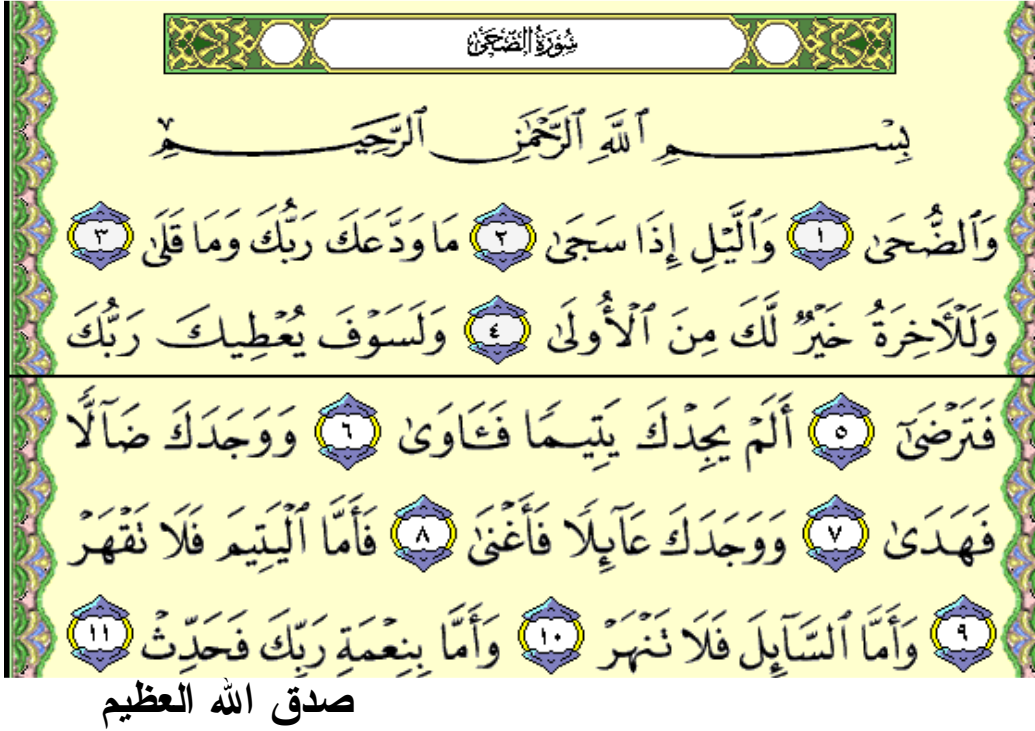 سُورَةُ الضُّحَىٰ
بِسْمِ ٱللَّهِ ٱلرَّحْمَٰنِ ٱلرَّحِيمِ
وَٱلضُّحَىٰ ١ وَٱلَّيْلِ إِذَا سَجَىٰ ٢ مَا وَدَّعَكَ رَبُّكَ وَمَا قَلَىٰ ٣
وَلَلْأَخِرَةُ خَيْرٌ لَّكَ مِنَ ٱلْأُولَىٰ ٤ وَلَسَوْفَ يُعْطِيكَ رَبُّكَ
فَتَرْضَىٰٓ ٥ أَلَمْ يَجِدْكَ يَتِيمًا فَـَٔاوَىٰ ٦ وَوَجَدَكَ ضَآلًّا
فَهَدَىٰ ٧ وَوَجَدَكَ عَآئِلًا فَأَغْنَىٰ ٨ فَأَمَّا ٱلْيَتِيمَ فَلَا تَقْهَرْ
٩ وَأَمَّا ٱلسَّآئِلَ فَلَا تَنْهَرْ ١٠ وَأَمَّا بِنِعْمَةِ رَبِّكَ فَحَدِّثْ ١١
صدق الله العظيم